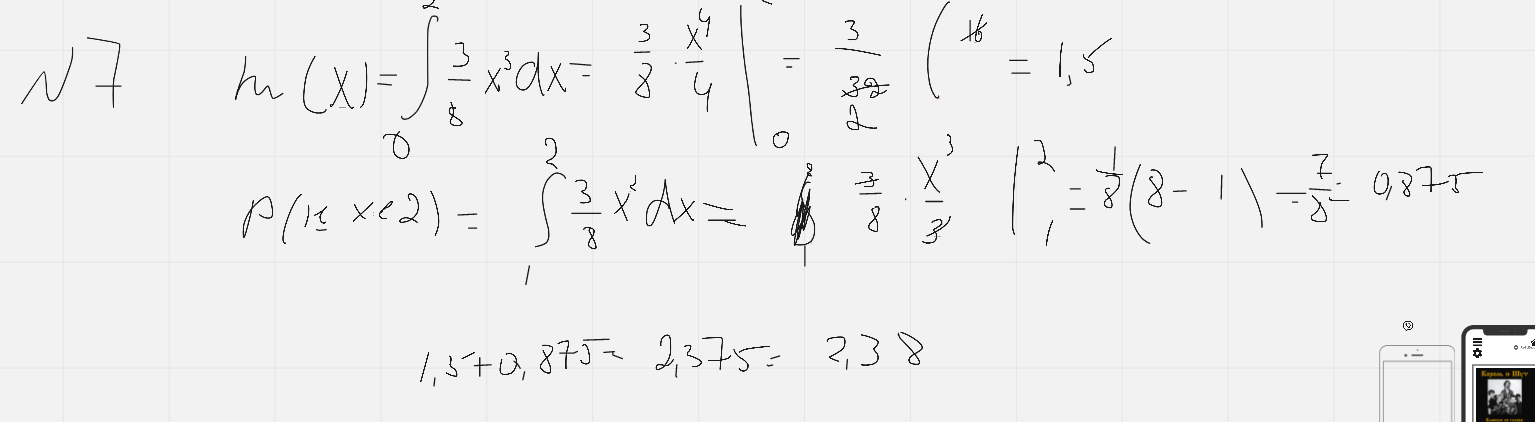 N7 m(X) = ∫₀² 3/8 x³ dx = 3/8 · x⁴/4 |₀ = 3/32 2 (16 = 1,5
P(1< x<2) = ∫₁² 3/8 x² dx = 3/8 · x³/3 |₁² = 1/8 (8 - 1) = 7/8 = 0,875
1,5+0,875= 2,375= 2,38
Король и Шут